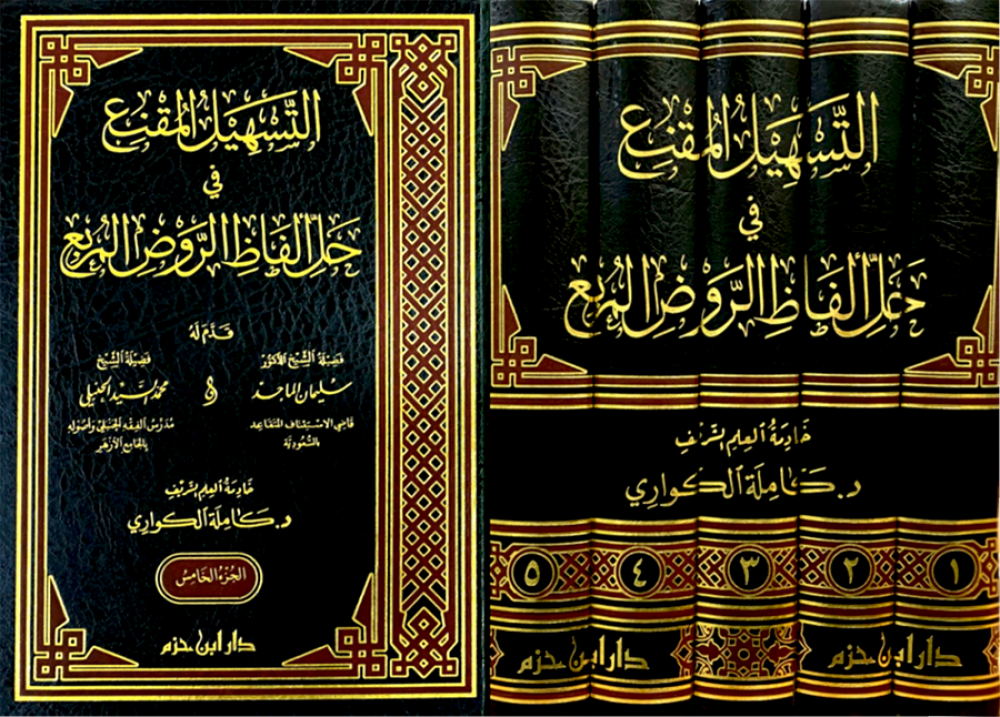 التَّسهِيلُ المُقنِع
في
حَلِّ ألفَاظِ الرَّوضِ المُربِع
قَدَّمَ لَهُ
فَضِيلَةُ الشَّيخِ الدُّكتُور
سليمان الماجد
قاضي الاستئناف المتقاعد
بالسُّعُوديَّة
و
فَضِيلَةُ الشَّيخ
محمد السَّيِّد الحنبلي
مُدَرِّسُ الفِقهِ الحَنبَليِّ وَأُصُولِهِ
بِالجَامِعِ الأَزهَرِ
خَادِمَةُ العِلمِ الشَّرِيفِ
د. كَامِلَة الكَوَارِي
الجُزءُ الخَامِسُ
دار ابن حزم
التَّسهِيلُ المُقنِع
في
حَلِّ ألفَاظِ الرَّوضِ المُربِع
خَادِمَةُ العِلمِ الشَّرِيفِ
د. كَامِلَة الكَوَارِي
١ ٢ ٣ ٤ ٥
دار ابن حزم
دار ابن حزم